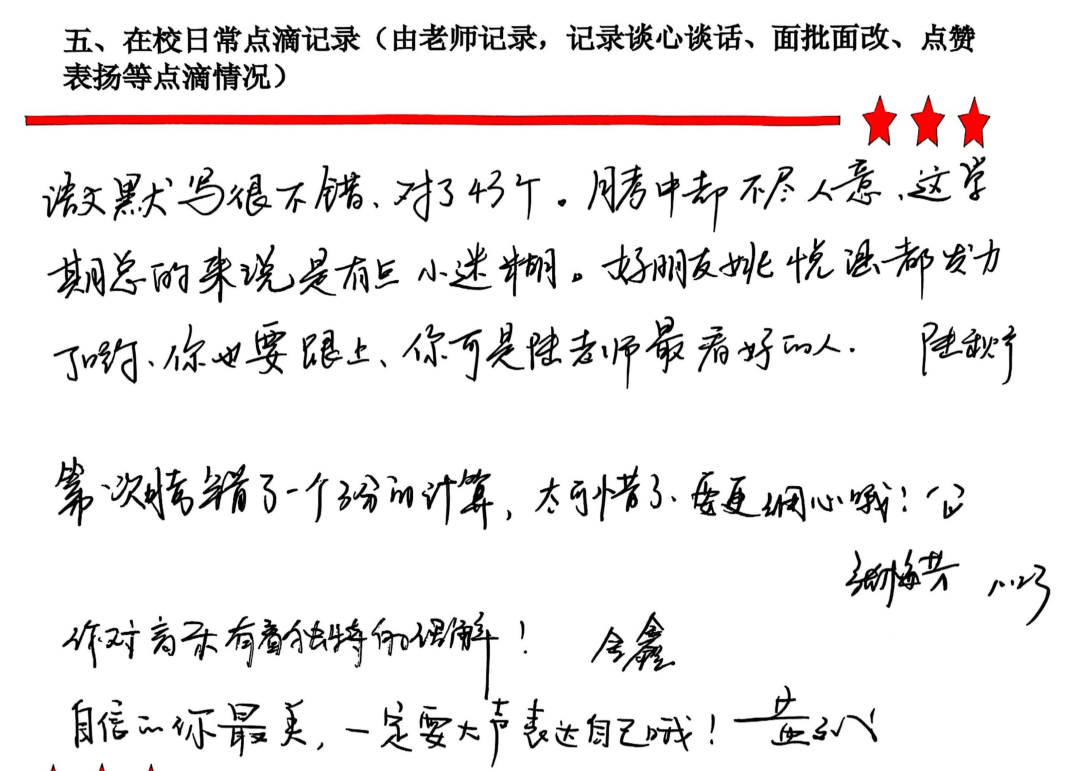 五、在校日常点滴记录（由老师记录，记录谈心谈话、面批面改、点赞
表扬等点滴情况）
语文默写很不错、对了43个。月考中却不尽人意、这学
期总的来说是有点小迷糊。好朋友姚悦涵都发力
了哟、你也要跟上、你可是陆老师最看好的人. 陆秋
第一次月考错了一个3分的计算，太可惜了、要更细心哦！
你对音乐有着独特的理解！ 金鑫
自信的你最美，一定要大声表达自己哦！